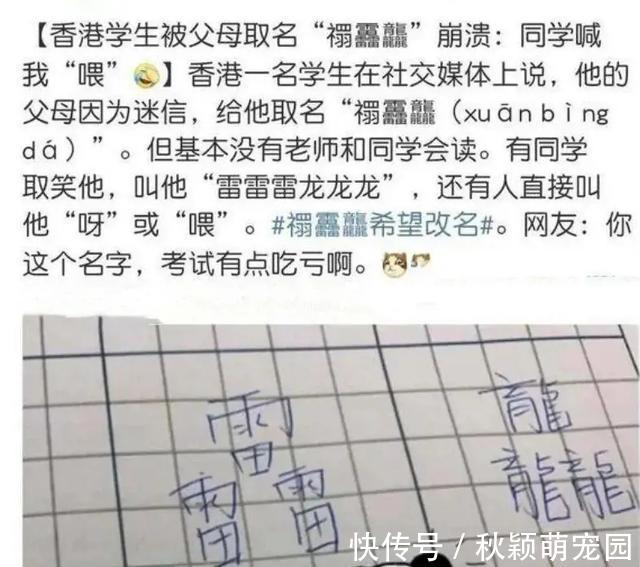 【香港学生被父母取名“禤靐龘”崩溃：同学喊
我“喂”🤣】香港一名学生在社交媒体上说，他的
父母因为迷信，给他取名“禤靐龘（xuānbìng
dá）”。但基本没有老师和同学会读。有同学
取笑他，叫他“雷雷雷龙龙龙”，还有人直接叫
他“呀”或“喂”。#禤靐龘希望改名#。网友：你
这个名字，考试有点吃亏啊。
靐 龘
快传号／秋颖萌宠园